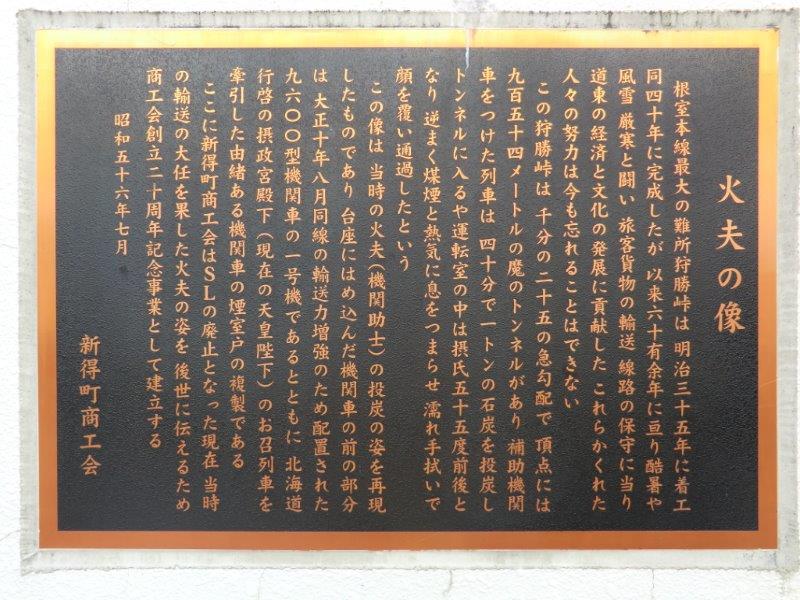 火夫の像
根室本線最大の難所狩勝峠は 明治三十五年に着工
同四十年に完成したが 以来六十有余年に亘り酷暑や
風雪 厳寒と闘い 旅客貨物の輸送 線路の保守に当り
道東の経済と文化の発展に貢献した これらかくれた
人々の努力は今も忘れることはできない
この狩勝峠は 千分の二十五の急勾配で 頂点には
九百五十四メートルの魔のトンネルがあり 補助機関
車をつけた列車は 四十分で一トンの石炭を投炭し
トンネルに入るや運転室の中は摂氏五十五度前後と
なり 逆まく煤煙と熱気に息をつまらせ 濡れ手拭いで
顔を覆い通過したという
この像は 当時の火夫(機関助士)の投炭の姿を再現
したものであり 台座にはめ込んだ機関車の前の部分
は 大正十年八月同線の輸送力増強のため配置された
九六〇〇型機関車の一号機であるとともに 北海道
行啓の摂政宮殿下(現在の天皇陛下)のお召列車を
牽引した由緒ある機関車の煙室戸の複製である
ここに新得町商工会はSLの廃止となった現在 当時
の輸送の大任を果した火夫の姿を 後世に伝えるため
商工会創立二十周年記念事業として建立する
昭和五十六年七月
新得町商工会